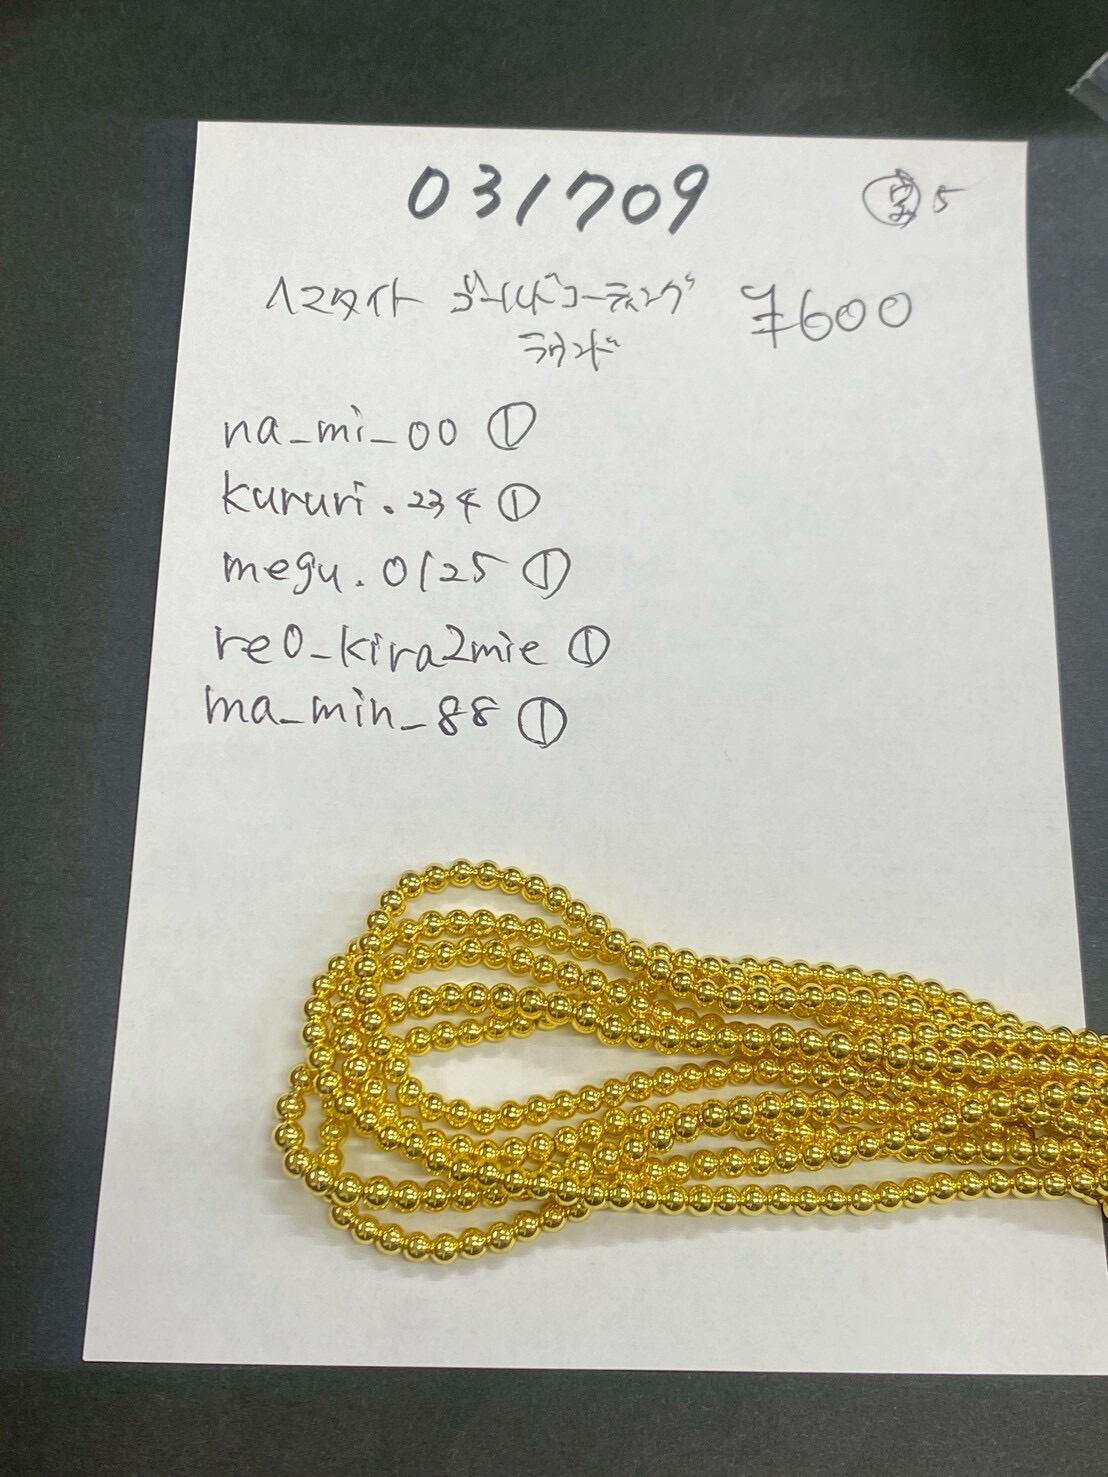 031709
5
ヘマタイト ゴールドコーティング ¥600
ラウンド
na_mi_00 ①
kururi.234 ①
megu.0125 ①
re0_kira2mie ①
ma_min_88 ①